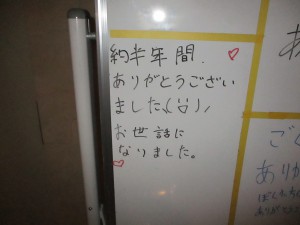 約半年間.♡
ありがとうござい
ました、(¨)ノ
お世話に
なりました。
♡
ご
あり
ぼくも
ありがと